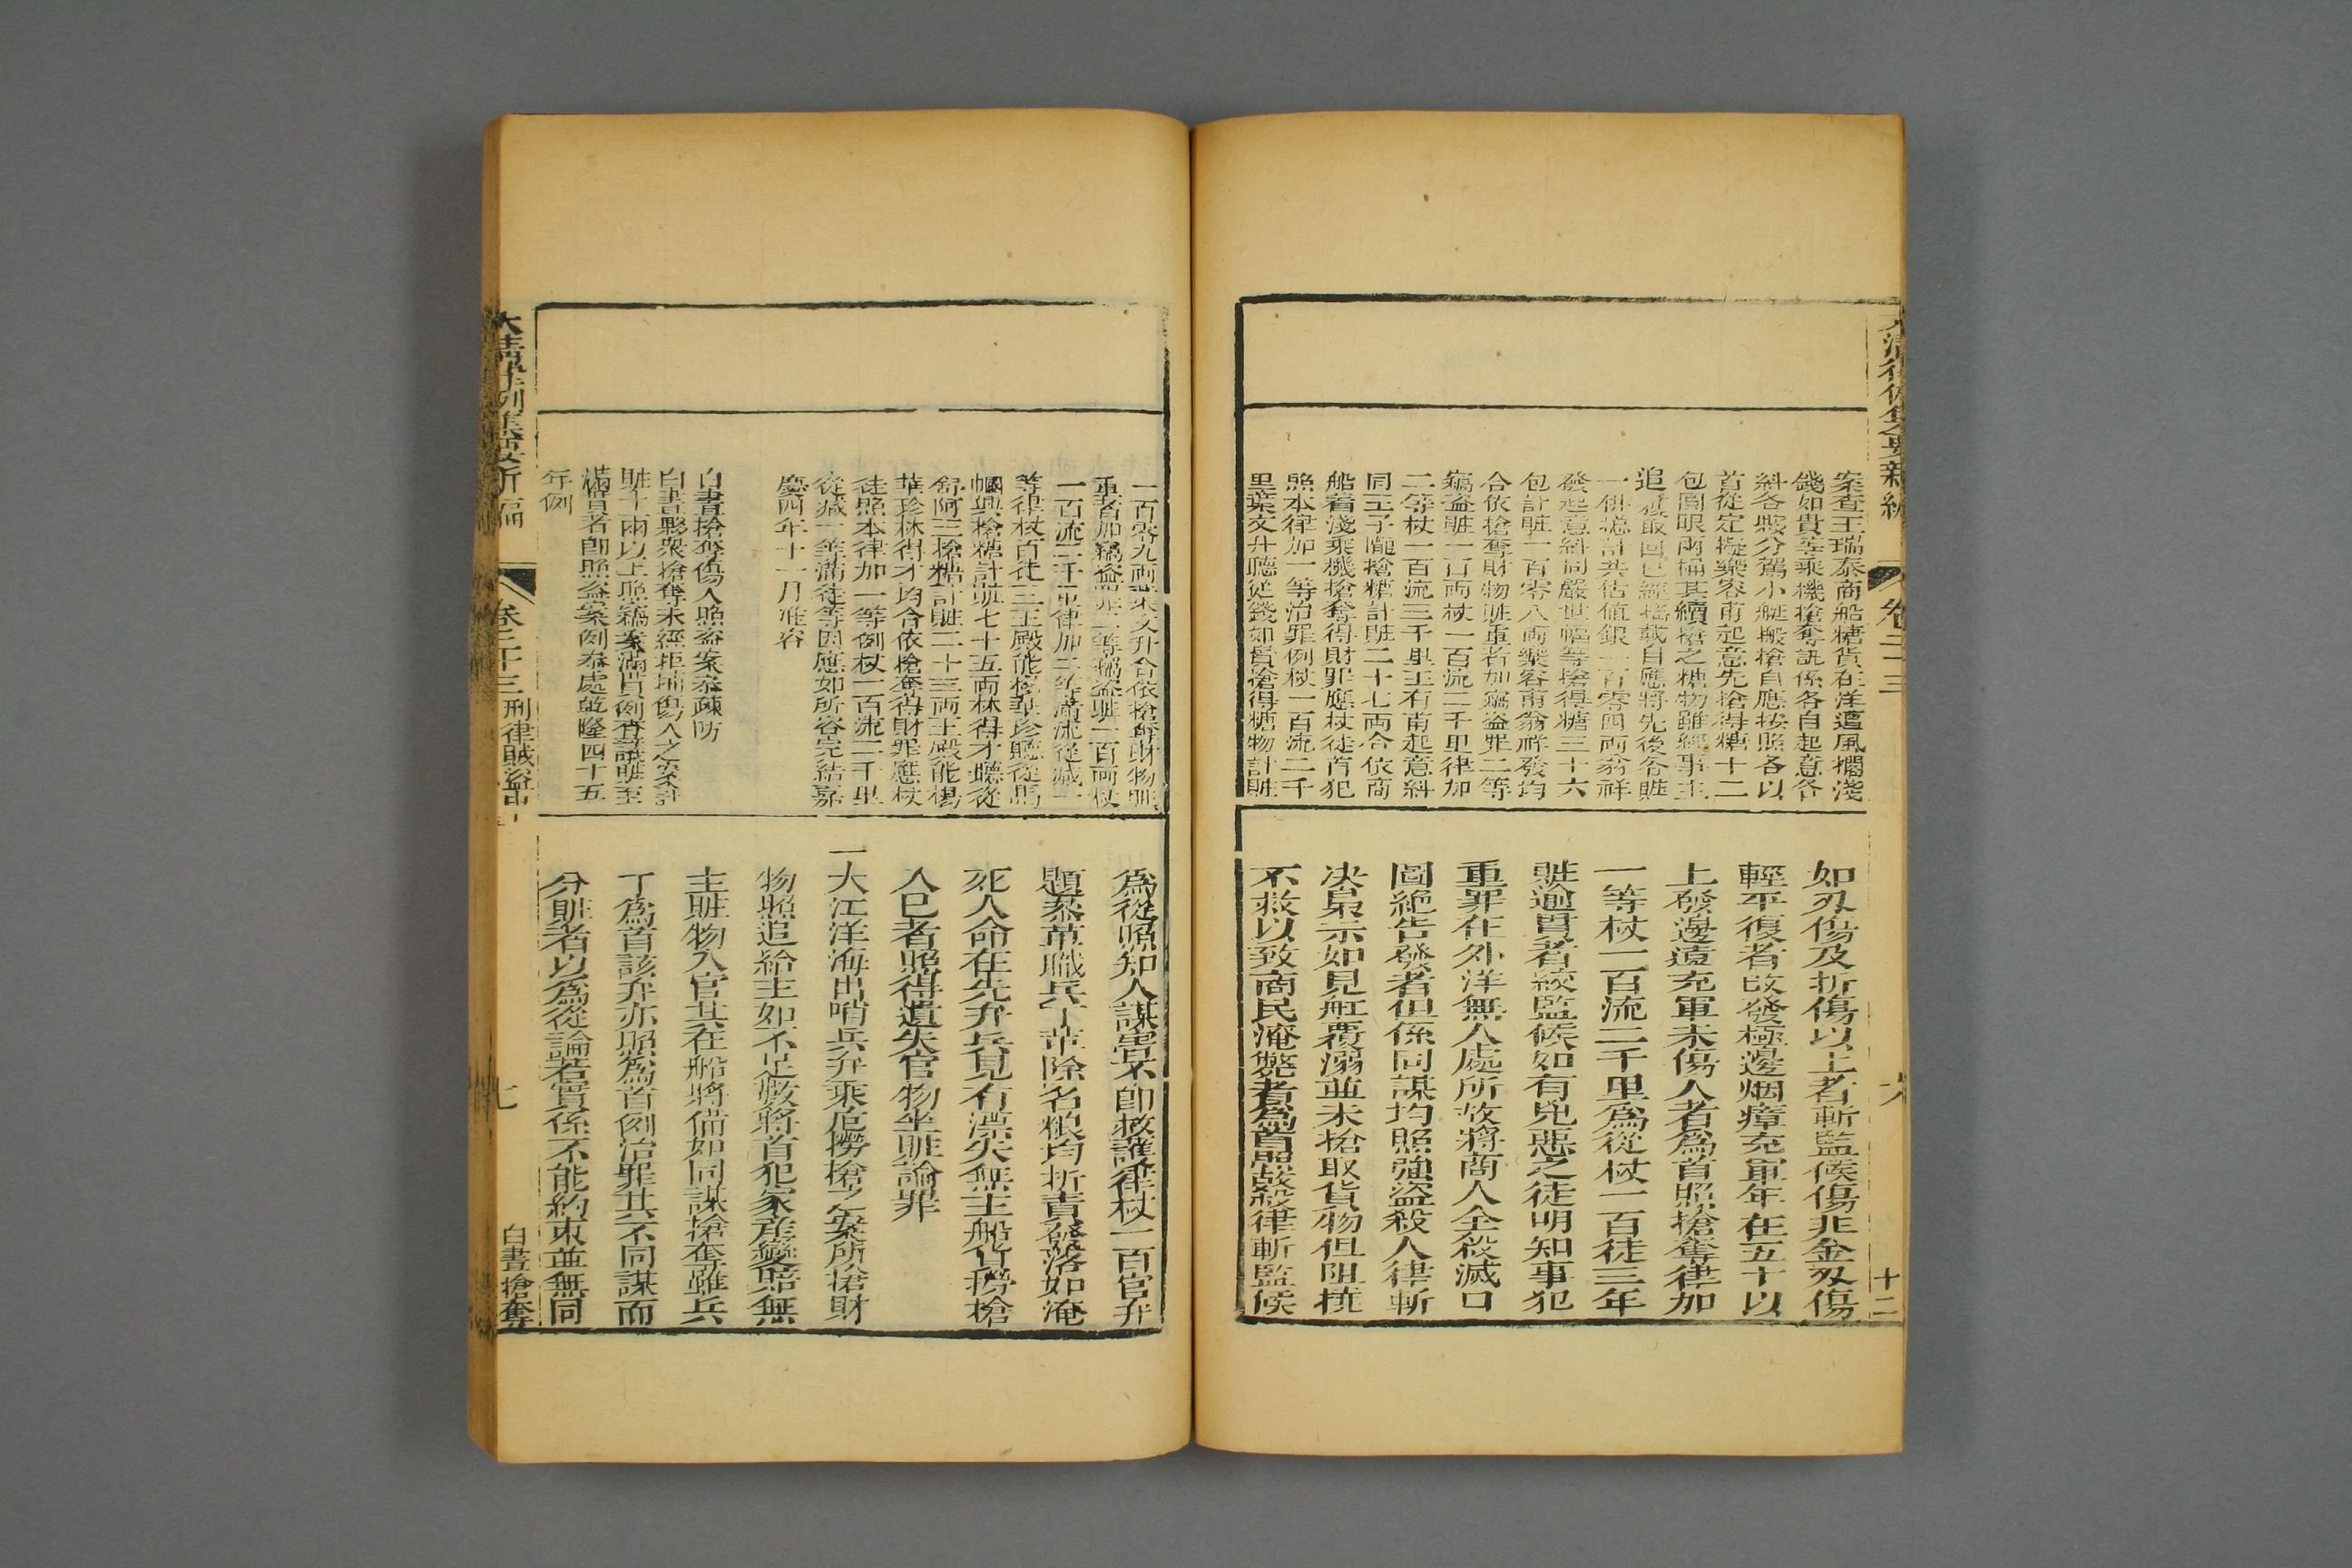 大清律例集要新編
卷二十三
六
十二
案查王瑞泰商船糖貨在洋遭風擱淺
錢如貴等乘機搶奪訊係各自起意各
糾各夥分駕小艇搬搶自應按照各以
首從定擬樂容甫起意先搶得糖十二
包圓眼兩桶其續搶之糖物雖經事主
追獲取回已經搭載自應將先後各賍
一併總計共估值銀一百零四両翁祥
發起意糾同嚴世幅等搶得糖三十六
包計賍一百零八両樂容甫翁祥發均
合依搶奪財物賍重者加竊盜罪二等
竊盜賍一百両杖一百流二千里律加
二等杖一百流三千里王有南起意糾
同王子隴搶糖計賍二十七両合依商
船着淺乘機搶奪得財罪應杖徒首犯
照本律加一等治罪例杖一百流二千
里葉文升聽從錢如貴搶得糖物計賍
如刄傷及折傷以上者斬監候傷非金刄傷
輕平復者改發極邊烟瘴充軍年在五十以
上發邊遠充軍未傷人者為首照搶奪律加
一等杖一百流二千里為從杖一百徒三年
賍逾貫者絞監候如有兇惡之徒明知事犯
重罪在外洋無人處所故將商人全殺滅口
圖絶告發者但係同謀均照強盜殺人律斬
决梟示如見舡覆溺並未搶取貨物但阻撓
不救以致商民淹斃者為首照故殺律斬監候
一百零九両葉文升合依搶奪財物賍
重者加竊盜罪二等竊盜賍一百両杖
一百流二千里律加二等滿流從減一
等律杖百徒三王殿能楊華珍聽從馬
幗興搶糖計賍七十五両林得才聽從
舒阿三搶糖計賍二十三両王殿能楊
華珍林得才均合依搶奪得財罪應杖
徒照本律加一等例杖一百流二千里
從減一等滿徒等因應如所咨完結嘉
慶四年十一月准咨
白晝搶奪傷人照盜案叅疎防
白晝夥衆搶奪未經拒捕傷人之案計
賍十両以上照竊案滿貫例查議賍至
滿貫者即照盜案例叅處乾隆四十五
年例
為從照知人謀害不即救護律杖一百官弁
題叅革職兵丁革除名粮均折責發落如淹
死人命在先弁兵見有漂失無主船貨撈搶
入已者照得遺失官物坐賍論罪
一大江洋海出哨兵弁乘危撈搶之案所搶財
物照追給主如不足數將首犯家產變賠無
主賍物入官其在船將備如同謀搶奪雖兵
丁為首該弁亦照為首例治罪其不同謀而
分賍者以為從論若實係不能約束並無同
大清律例集要新編
卷二十三
刑律賊盜中
七
白晝搶奪